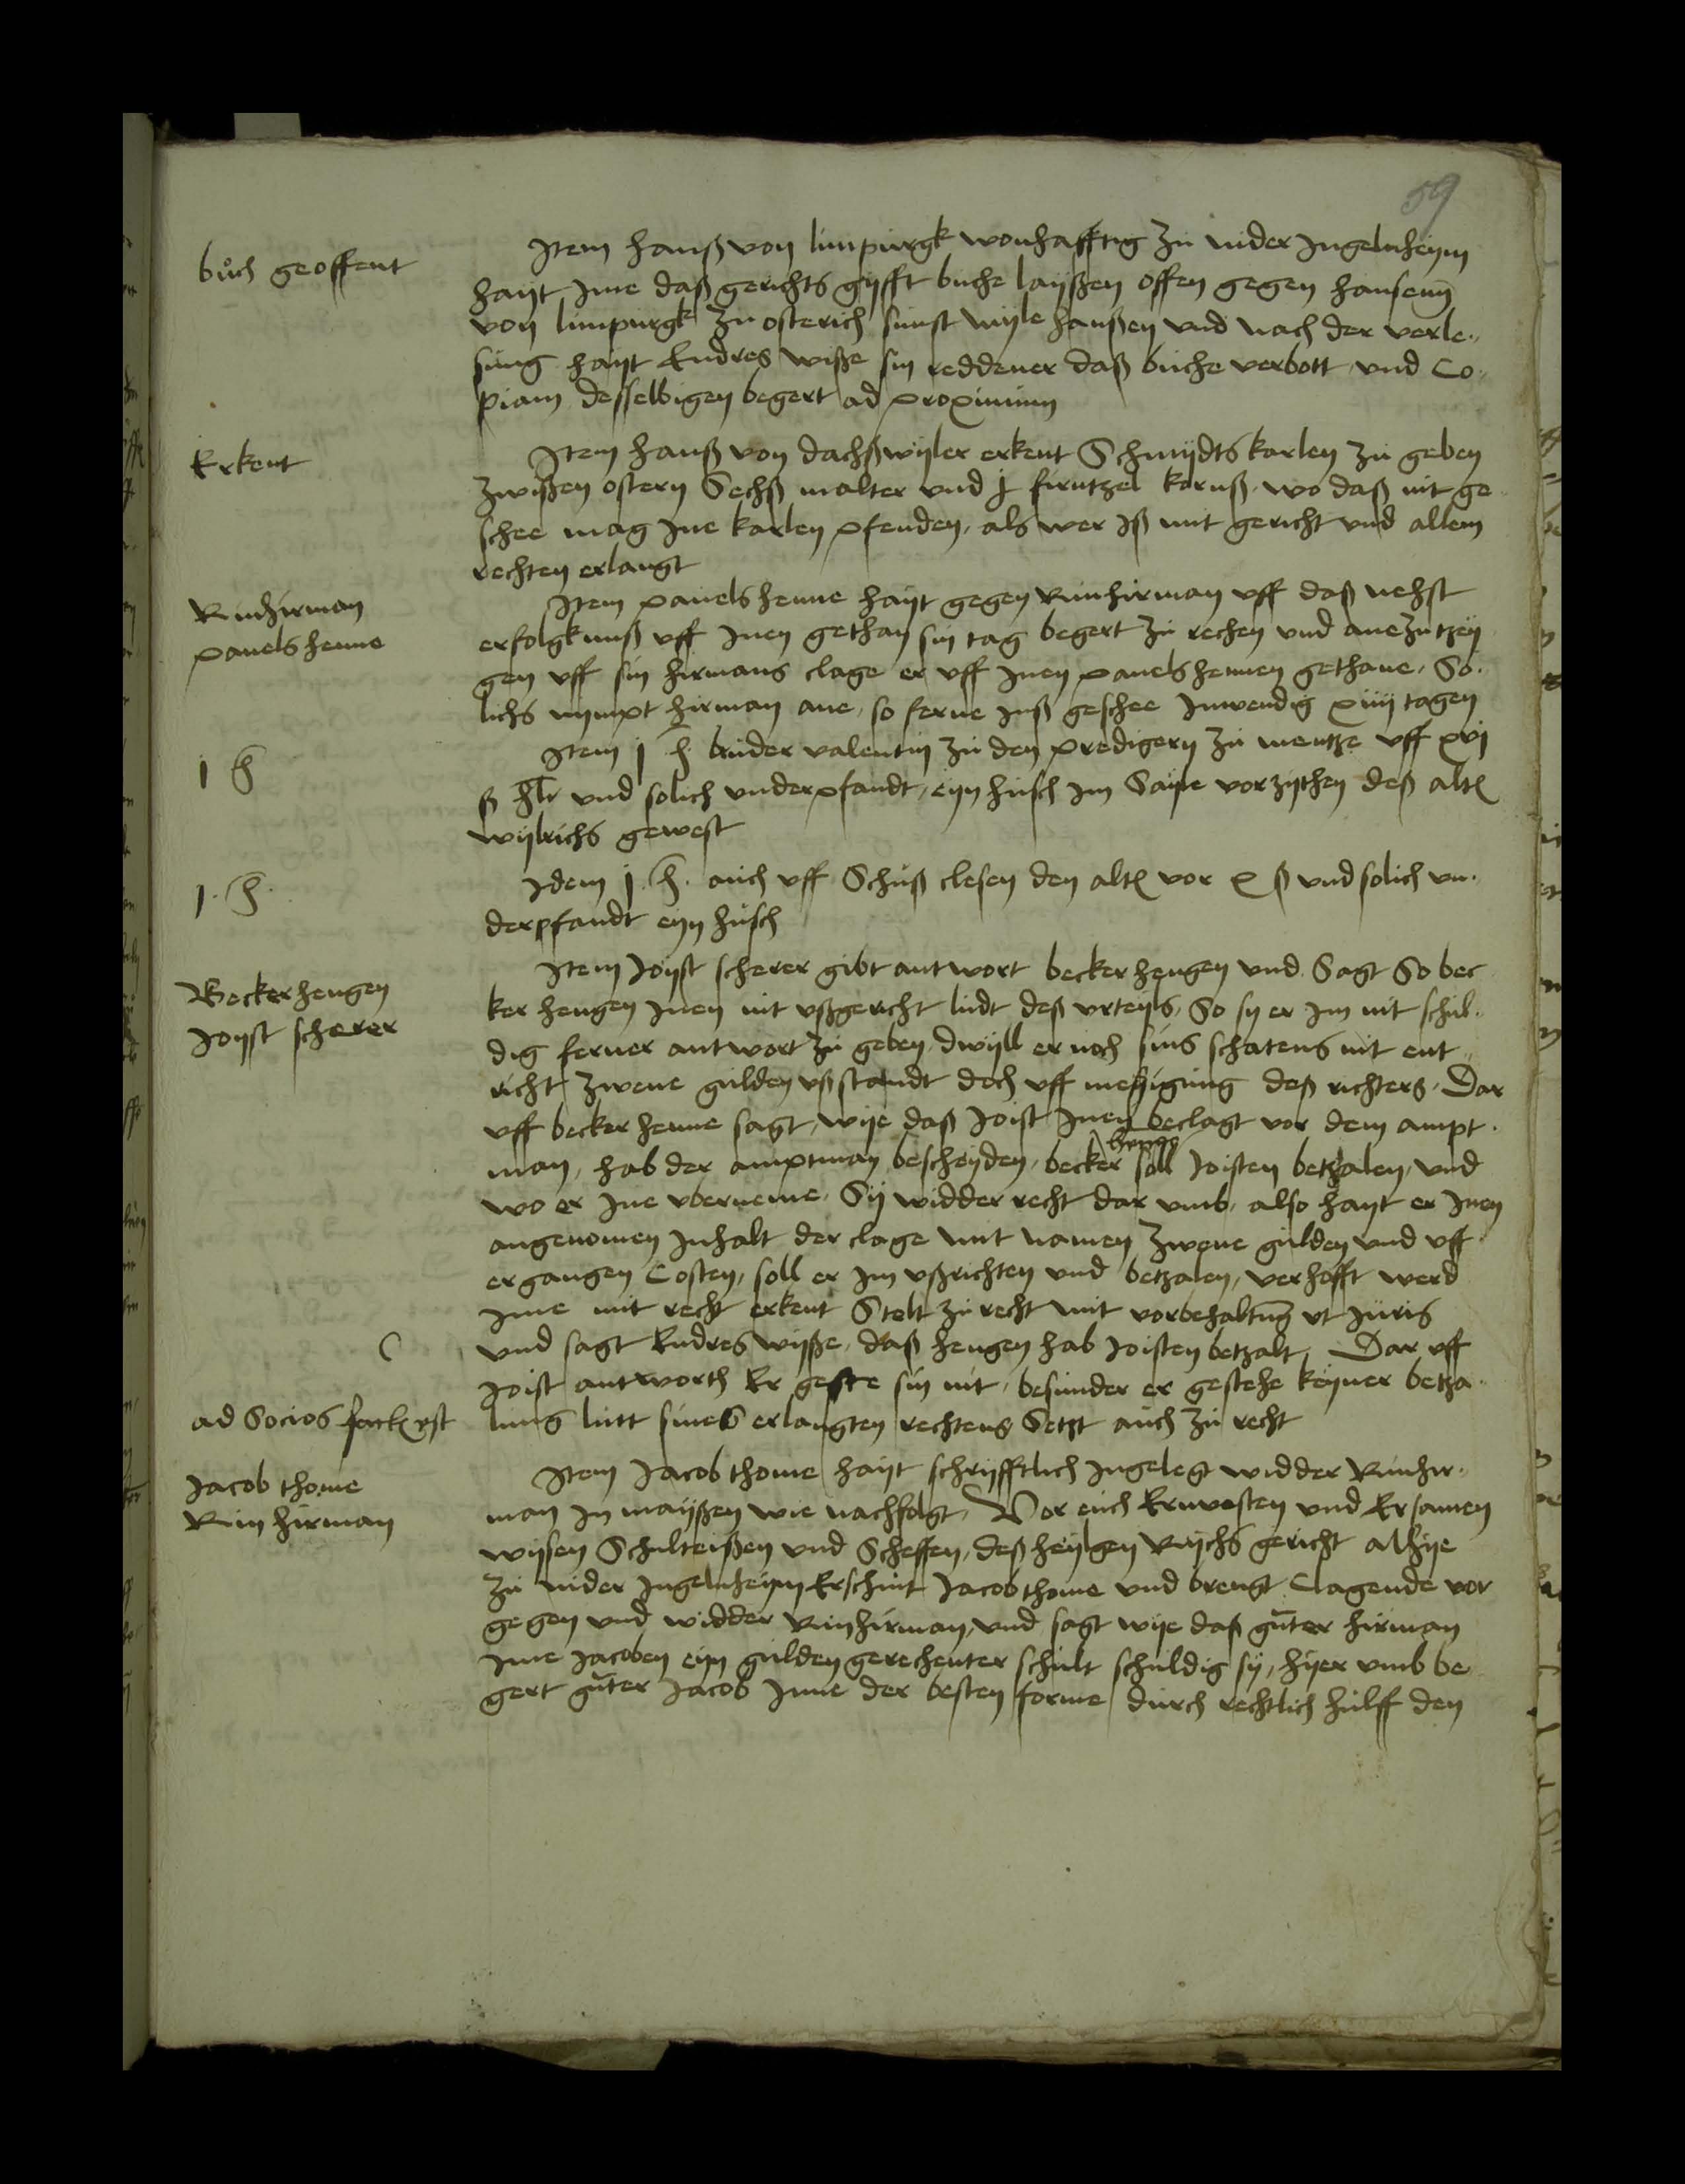 59
buch geoffent
Item hanß von limpurgk wonhafftig zu nider Ingelnheym
hayt Ime daß gerichts gyfft buche layßen offen gegen hansenn
von limpurgk zu osterich sunst wyle hanßen vnd nach der verle-
sung hayt Endres wiße sin reddener daß buche verbott vnd Co-
piam desselbigen begert ad proximum
Erkent
Item hanß von dachßwyler erkent Schmydts karlen zu geben
zwißen ostern Sechß malter vnd j firntzel kornß, wo daß nit ge
schee mag Ine karlen pfenden, als wer Iß mit gericht vnd allem
rechten erlangt
Rinhirman
pauels henne
Item pauels henne hayt gegen Rinhirman vff daß nehst
erfolgkniß vff Inen gethan sin tag begert zu rechen vnd anezutzey
gen vff sin hirmans clage er vff Inen pauels hennen gethane, So-
lichs nympt hirman ane, so ferne Inß geschee Inwendig xiiij tagen
1 h
Item j h bruder valentin zu den predigern zu mentze vff xvj
ß hlr vnd solich vnderpfandt, eyn husch Im Sayle vorzythen deß alten
wylrichs gewest
1. h.
Idem j. h. auch vff Schuß clesen den alten vor x ß vnd solich vn-
derpfandt eyn husch
Becker hengen
Joyst scherer
Item Joyst scherer gibt antwort becker hengen vnd Sagt So bec
ker hengen Inen nit vßgericht ludt deß vrteyls, So sy er Im nit schul-
dig ferner antwort zu geben, dwyll er noch sins schatens nit ent-
richt zwene gulden vßstandt doch vff messigung deß richters. Dar
vff becker henne sagt, wye daß Joist Inen beclagt vor dem ampt-
man, hab der amptman bescheyden, becker henne soll Joisten betzalen, vnd
wo er Ine vberneme, Sy widder recht dar vmb, also hayt er Inen
angenomen Inhalt der clage mit namen zwene gulden vnd vff
ergangen Costen, soll er Im vßrichten vnd betzalen, verhofft werd
Ime mit recht erkent Stelt zu recht mit vorbehaltung vt Juris
vnd sagt Endres wyße, daß hengen hab Joisten betzalt, Dar vff
Joist antworth Er geste sin nit, besunder er gestehe keyner betza-
ad Socios factum est
lung lutt sines erlangten rechtens Setzt auch zu recht
Jacob thome
Rin hirman
Item Jacob thome hayt schryfftlich Ingelegt widder Rinhir-
man In mayßen wie nachfolgt, Vor euch Ernvesten vnd Ersamen
wysen Schulteißen vnd Scheffen, deß heylgen Rychs gericht alhye
zu nider Ingelnheym Erschint Jacob thome vnd brengt Clagende vor
gegen vnd widder Rin hirman, vnd sagt wye daß guter hirman
Ime Jacoben eyn gulden gerechenter schult schuldig sy, hyer vmb be
gert guter Jacob Inne der besten forme durch rechtlich hulff den